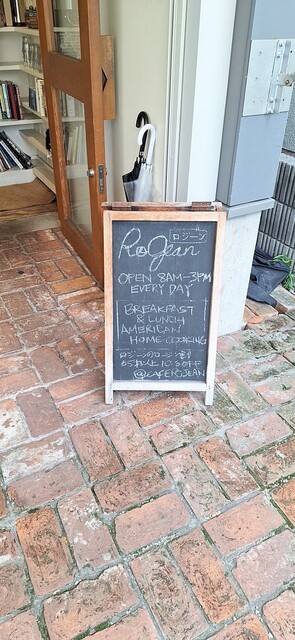 RoJean
ロジーン
OPEN 8AM-3PM
EVERY DAY
BREAKFAST
& LUNCH
AMERICAN
HOME-COOKING
65 10%OFF
@CAFEROJEAN